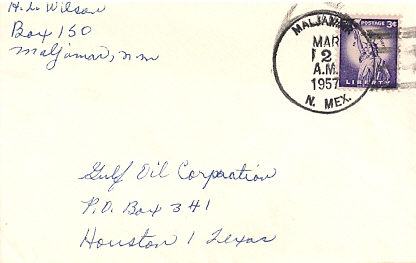 H. L. Wilson
Box 150
Maljamar, n m
MALJAMAR
MAR
2
A.M.
1957
N. MEX.
POSTAGE 3¢
LIBERTY
Gulf Oil Corporation
P.O. Box 341
Houston 1 Texas